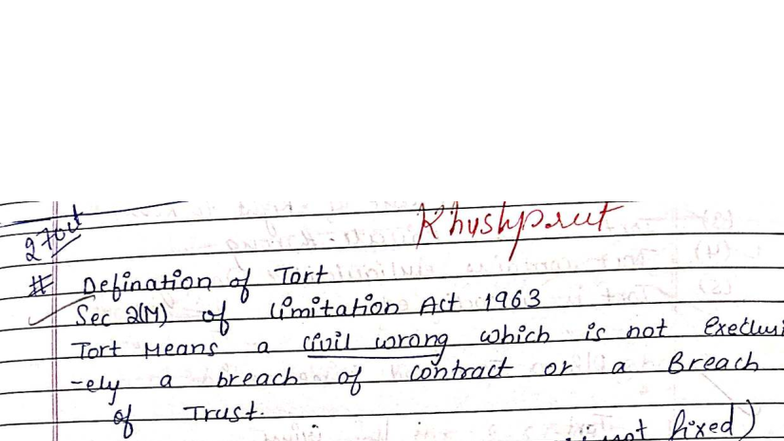 Khushpreet
2 Tort
# Defination of Tort
Sec 2(M) of limitation Act 1963
Tort Means a civil wrong which is not execlusi
-ely a breach of contract or a Breach
of Trust.
not fixed)